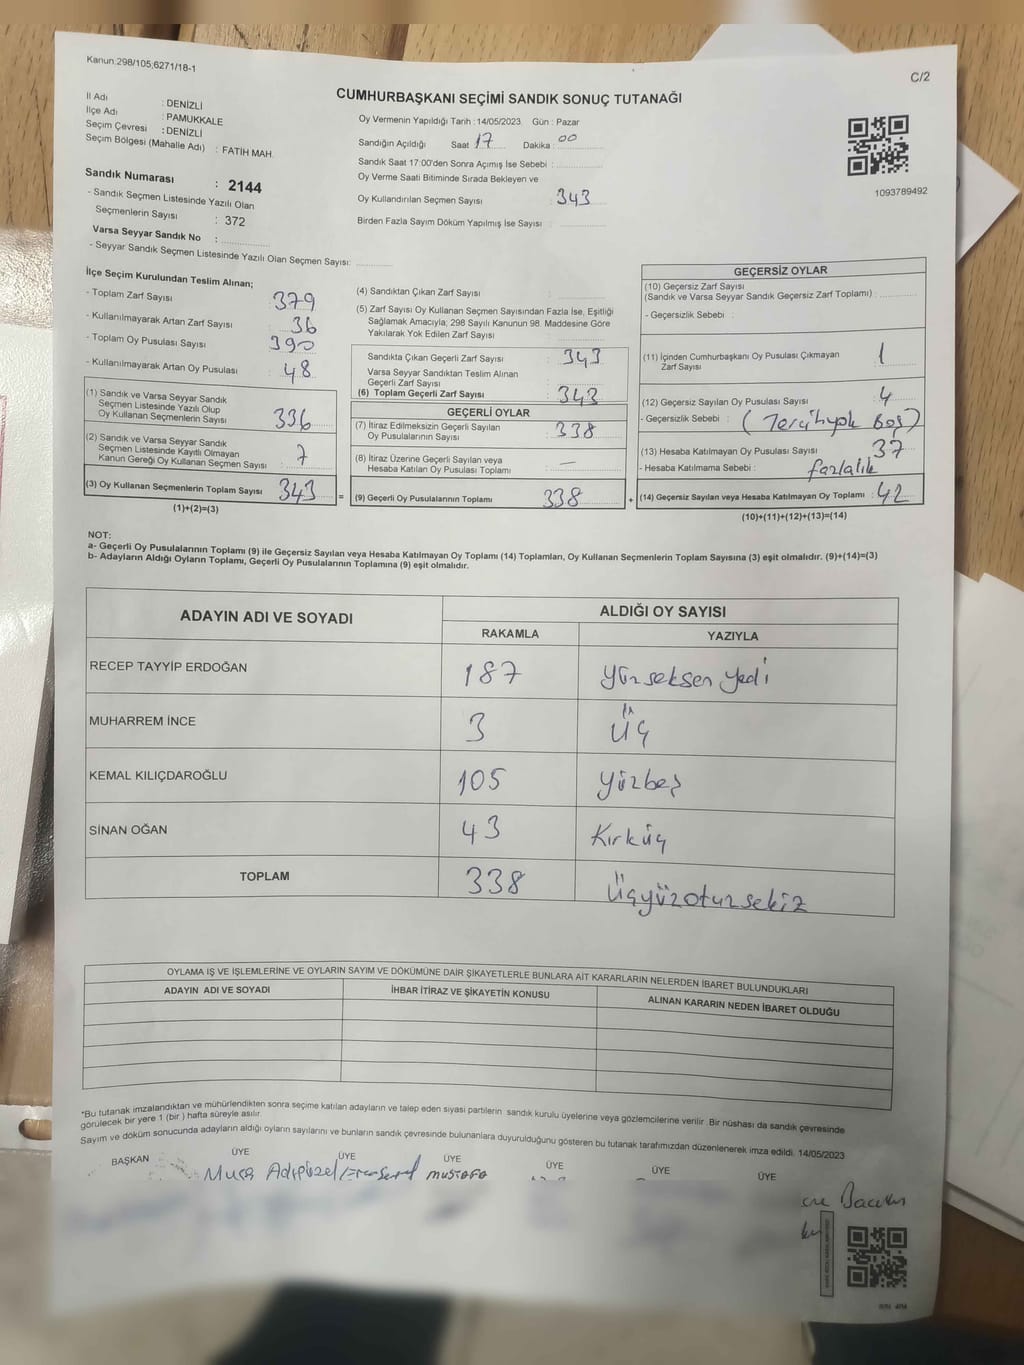 Kanun:298/105;6271/18-1
C/2
CUMHURBAŞKANI SEÇİMİ SANDIK SONUÇ TUTANAĞI
İl Adı : DENİZLİ
İlçe Adı : PAMUKKALE
Seçim Çevresi : DENİZLİ
Seçim Bölgesi (Mahalle Adı) : FATİH MAH.
Sandık Numarası : 2144
- Sandık Seçmen Listesinde Yazılı Olan
Seçmenlerin Sayısı : 372
Varsa Seyyar Sandık No :
- Seyyar Sandık Seçmen Listesinde Yazılı Olan Seçmen Sayısı:
Oy Vermenin Yapıldığı Tarih : 14/05/2023 Gün : Pazar
Sandığın Açıldığı Saat 17 Dakika : 00
Sandık Saat 17:00'den Sonra Açımış İse Sebebi :
Oy Verme Saati Bitiminde Sırada Bekleyen ve
Oy Kullandırılan Seçmen Sayısı : 343
Birden Fazla Sayım Döküm Yapılmış İse Sayısı :
1093789492
İlçe Seçim Kurulundan Teslim Alınan;
- Toplam Zarf Sayısı 379
- Kullanılmayarak Artan Zarf Sayısı 36
- Toplam Oy Pusulası Sayısı 390
- Kullanılmayarak Artan Oy Pusulası 48
(1) Sandık ve Varsa Seyyar Sandık
Seçmen Listesinde Yazılı Olup
Oy Kullanan Seçmenlerin Sayısı 336
(2) Sandık ve Varsa Seyyar Sandık
Seçmen Listesinde Kayıtlı Olmayan
Kanun Gereği Oy Kullanan Seçmen Sayısı 7
(3) Oy Kullanan Seçmenlerin Toplam Sayısı 343 =
(1)+(2)=(3)
(4) Sandıktan Çıkan Zarf Sayısı :
(5) Zarf Sayısı Oy Kullanan Seçmen Sayısından Fazla İse, Eşitliği
Sağlamak Amacıyla; 298 Sayılı Kanunun 98. Maddesine Göre
Yakılarak Yok Edilen Zarf Sayısı
Sandıkta Çıkan Geçerli Zarf Sayısı : 343
Varsa Seyyar Sandıktan Teslim Alınan
Geçerli Zarf Sayısı :
(6) Toplam Geçerli Zarf Sayısı : 343
GEÇERLİ OYLAR
(7) İtiraz Edilmeksizin Geçerli Sayılan
Oy Pusulalarının Sayısı : 338
(8) İtiraz Üzerine Geçerli Sayılan veya
Hesaba Katılan Oy Pusulası Toplamı : —
(9) Geçerli Oy Pusulalarının Toplamı 338 +
GEÇERSİZ OYLAR
(10) Geçersiz Zarf Sayısı
(Sandık ve Varsa Seyyar Sandık Geçersiz Zarf Toplamı) :
- Geçersizlik Sebebi :
(11) İçinden Cumhurbaşkanı Oy Pusulası Çıkmayan
Zarf Sayısı : 1
(12) Geçersiz Sayılan Oy Pusulası Sayısı : 4
- Geçersizlik Sebebi : (Tercihyok Boş)
(13) Hesaba Katılmayan Oy Pusulası Sayısı : 37
- Hesaba Katılmama Sebebi : fazlalık
(14) Geçersiz Sayılan veya Hesaba Katılmayan Oy Toplamı : 42
(10)+(11)+(12)+(13)=(14)
NOT:
a- Geçerli Oy Pusulalarının Toplamı (9) ile Geçersiz Sayılan veya Hesaba Katılmayan Oy Toplamı (14) Toplamları, Oy Kullanan Seçmenlerin Toplam Sayısına (3) eşit olmalıdır. (9)+(14)=(3)
b- Adayların Aldığı Oyların Toplamı, Geçerli Oy Pusulalarının Toplamına (9) eşit olmalıdır.
ADAYIN ADI VE SOYADI ALDIĞI OY SAYISI
RAKAMLA YAZIYLA
RECEP TAYYİP ERDOĞAN 187 Yüzseksen yedi
MUHARREM İNCE 3 Üç
KEMAL KILIÇDAROĞLU 105 Yüzbeş
SİNAN OĞAN 43 Kırküç
TOPLAM 338 Üçyüzotuzsekiz
OYLAMA İŞ VE İŞLEMLERİNE VE OYLARIN SAYIM VE DÖKÜMÜNE DAİR ŞİKAYETLERLE BUNLARA AİT KARARLARIN NELERDEN İBARET BULUNDUKLARI
ADAYIN ADI VE SOYADI İHBAR İTİRAZ VE ŞİKAYETİN KONUSU ALINAN KARARIN NEDEN İBARET OLDUĞU
*Bu tutanak imzalandıktan ve mühürlendikten sonra seçime katılan adayların ve talep eden siyasi partilerin sandık kurulu üyelerine veya gözlemcilerine verilir. Bir nüshası da sandık çevresinde
görülecek bir yere 1 (bir ) hafta süreyle asılır.
Sayım ve döküm sonucunda adayların aldığı oyların sayılarını ve bunların sandık çevresinde bulunanlara duyurulduğunu gösteren bu tutanak tarafımızdan düzenlenerek imza edildi. 14/05/2023
BAŞKAN ÜYE ÜYE ÜYE ÜYE ÜYE ÜYE
Musa Adıgüzel MUSTAFA